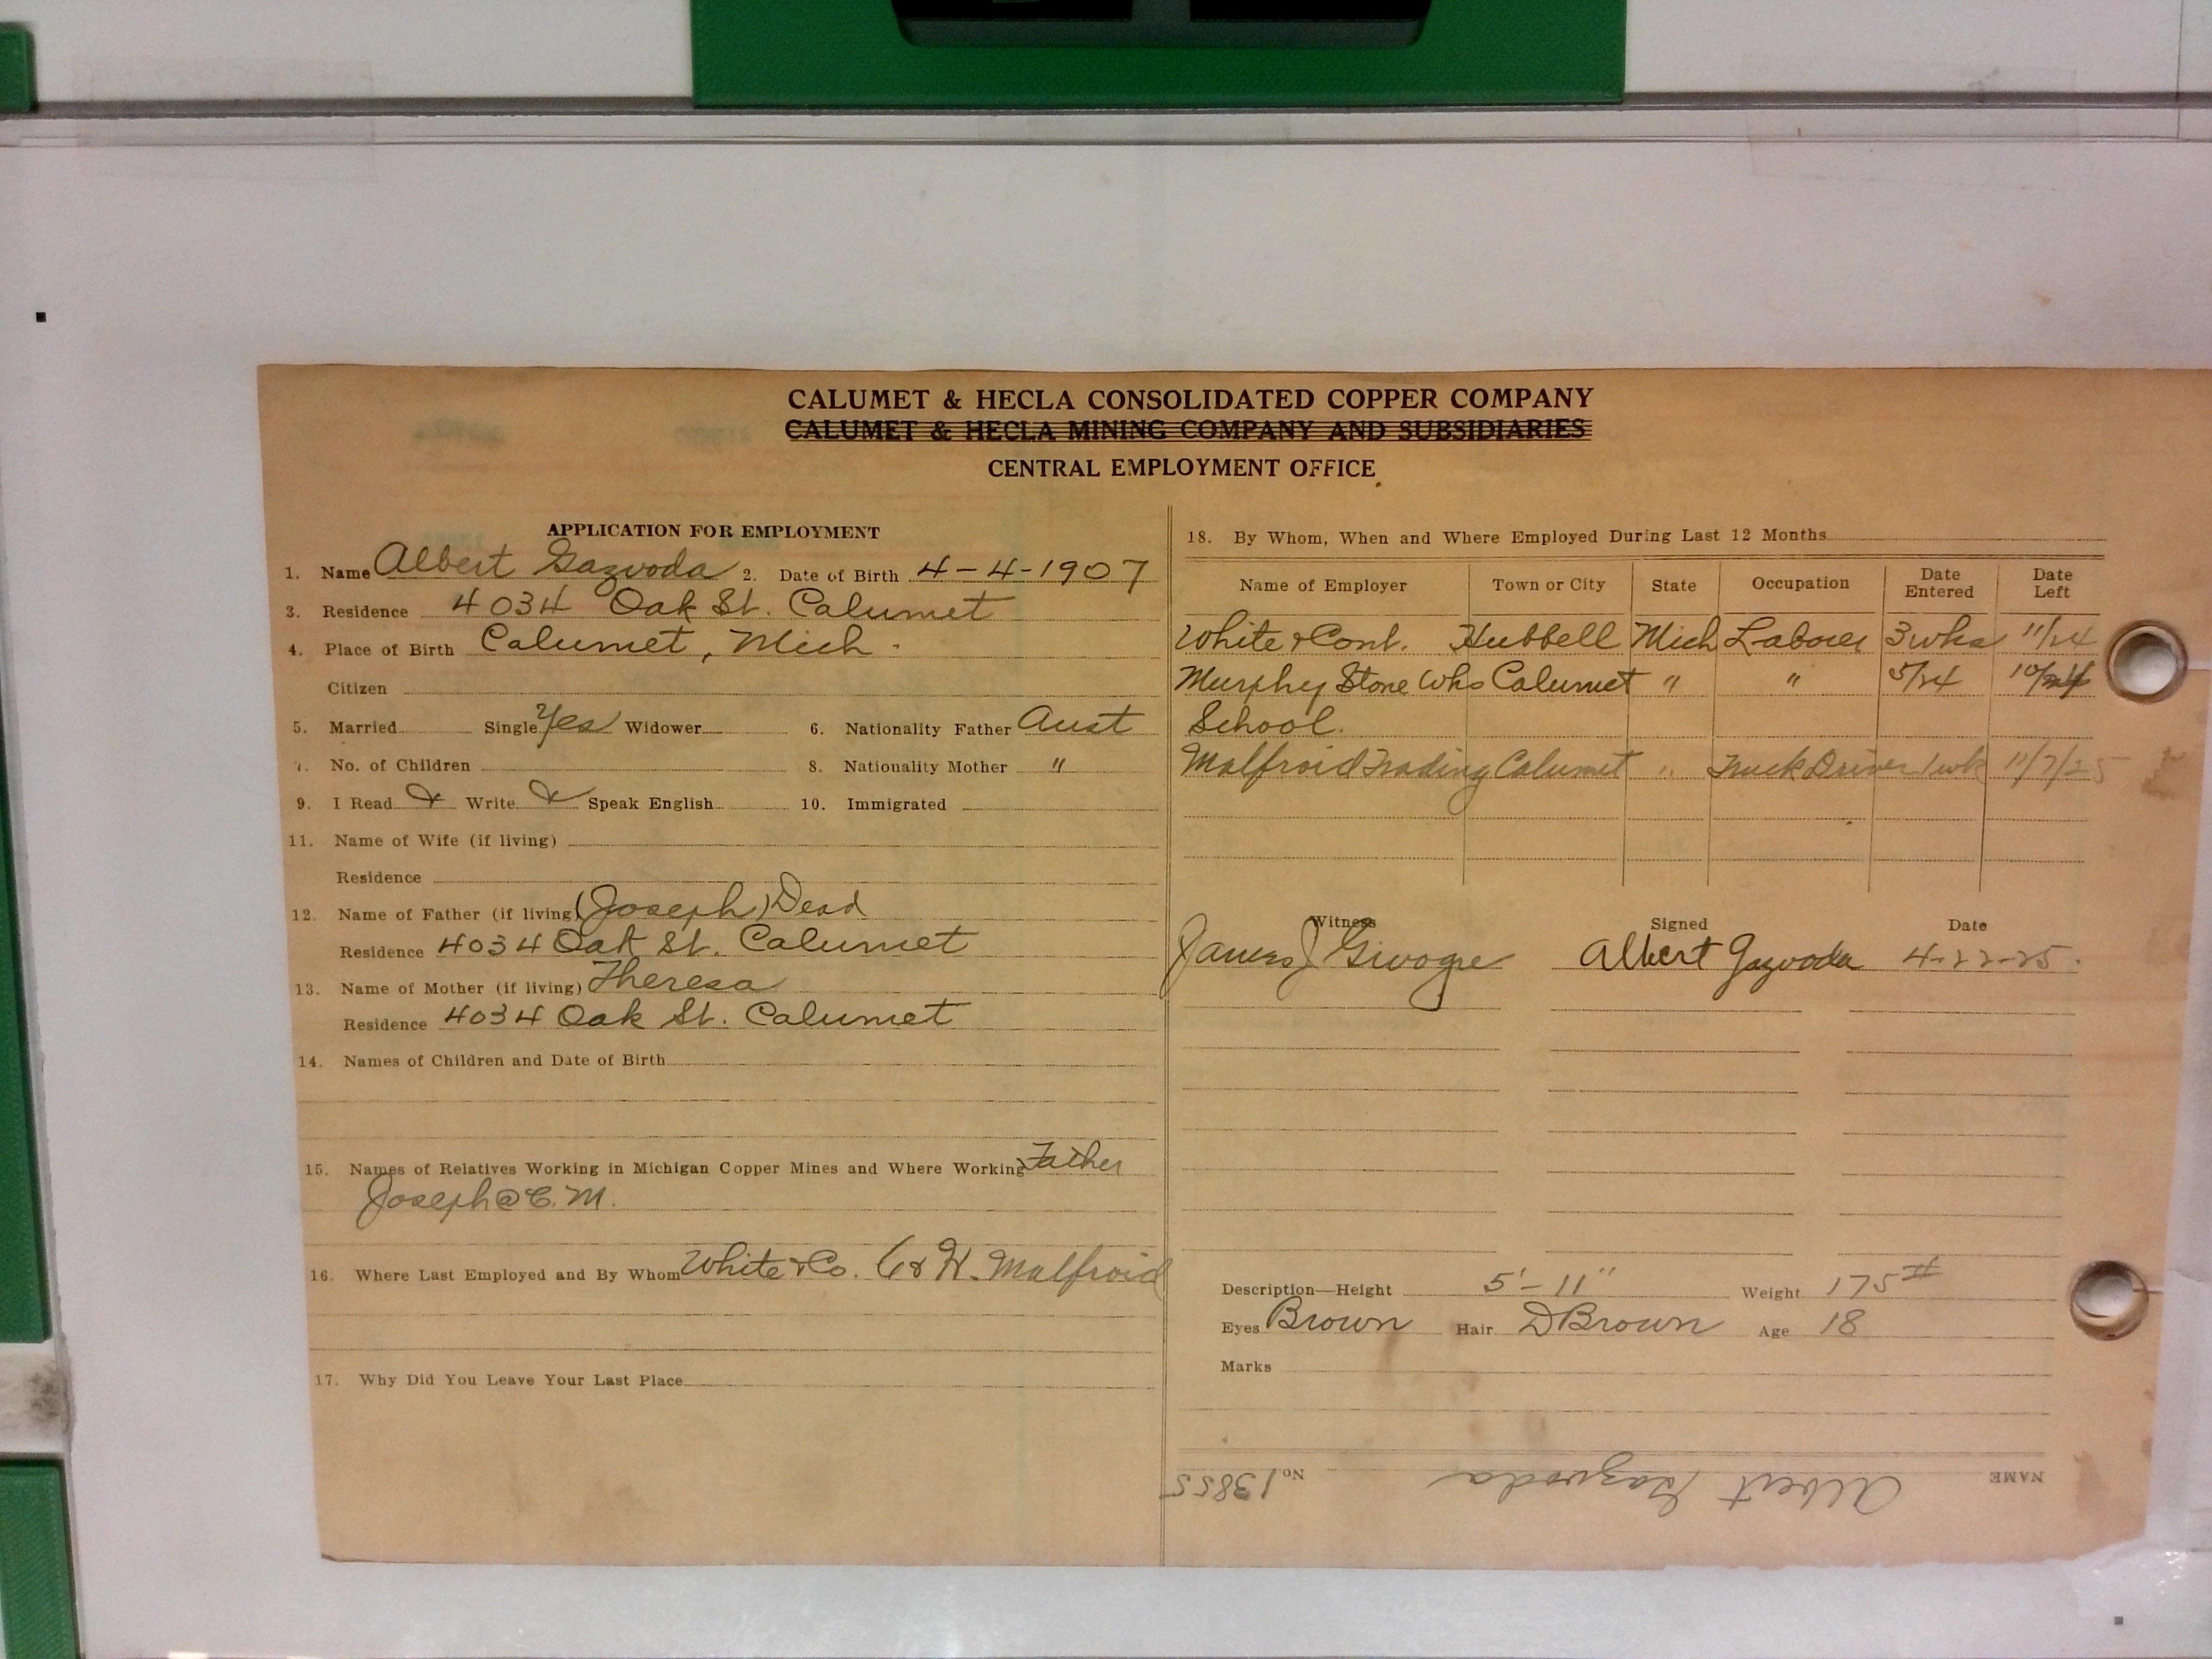 CALUMET & HECLA CONSOLIDATED COPPER COMPANY
CALUMET & HECLA MINING COMPANY AND SUBSIDIARIES
CENTRAL EMPLOYMENT OFFICE
APPLICATION FOR EMPLOYMENT
1. Name Albert Gazvoda 2. Date of Birth 4-4-1907
3. Residence 4034 Oak St. Calumet
4. Place of Birth Calumet, Mich.
Citizen
5. Married Single Yes Widower 6. Nationality Father Aust
7. No. of Children 8. Nationality Mother "
9. I Read & Write & Speak English 10. Immigrated
11. Name of Wife (if living)
Residence
12. Name of Father (if living) (Joseph) Dead
Residence 4034 Oak St. Calumet
13. Name of Mother (if living) Theresa
Residence 4034 Oak St. Calumet
14. Names of Children and Date of Birth
15. Names of Relatives Working in Michigan Copper Mines and Where Working Father
Joseph @ C. M.
16. Where Last Employed and By Whom White & Co. C & H. Malfroid
17. Why Did You Leave Your Last Place
18. By Whom, When and Where Employed During Last 12 Months
Name of Employer Town or City State Occupation Date Entered Date Left
White & Cont. Hubbell Mich Laborer 3 wks 11/24
Murphy Stone Whs Calumet " " 5/24 10/24
School.
Malfroid Trading Calumet " Truck Driver 1 wk 11/7/25
Witness Signed Date
James J Albert Gazvoda 4-22-25.
Description—Height 5'-11" Weight 175#
Eyes Brown Hair D Brown Age 18
Marks
NAME Albert Gazvoda No. 13855